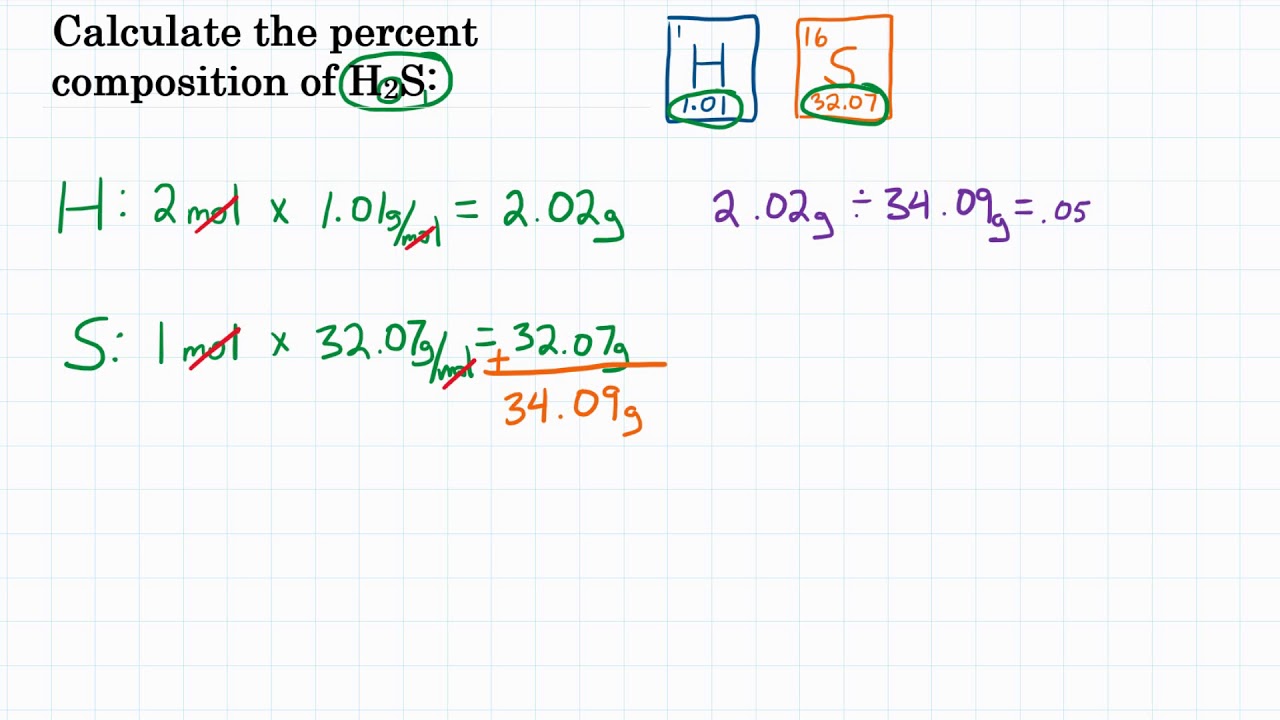 Calculate the percent
composition of H₂S:
1
H
1.01
16
S
32.07
H: 2 mol x 1.01g/mol = 2.02g
2.02g ÷ 34.09g = .05
S: 1 mol x 32.07g/mol = 32.07g
+
34.09g